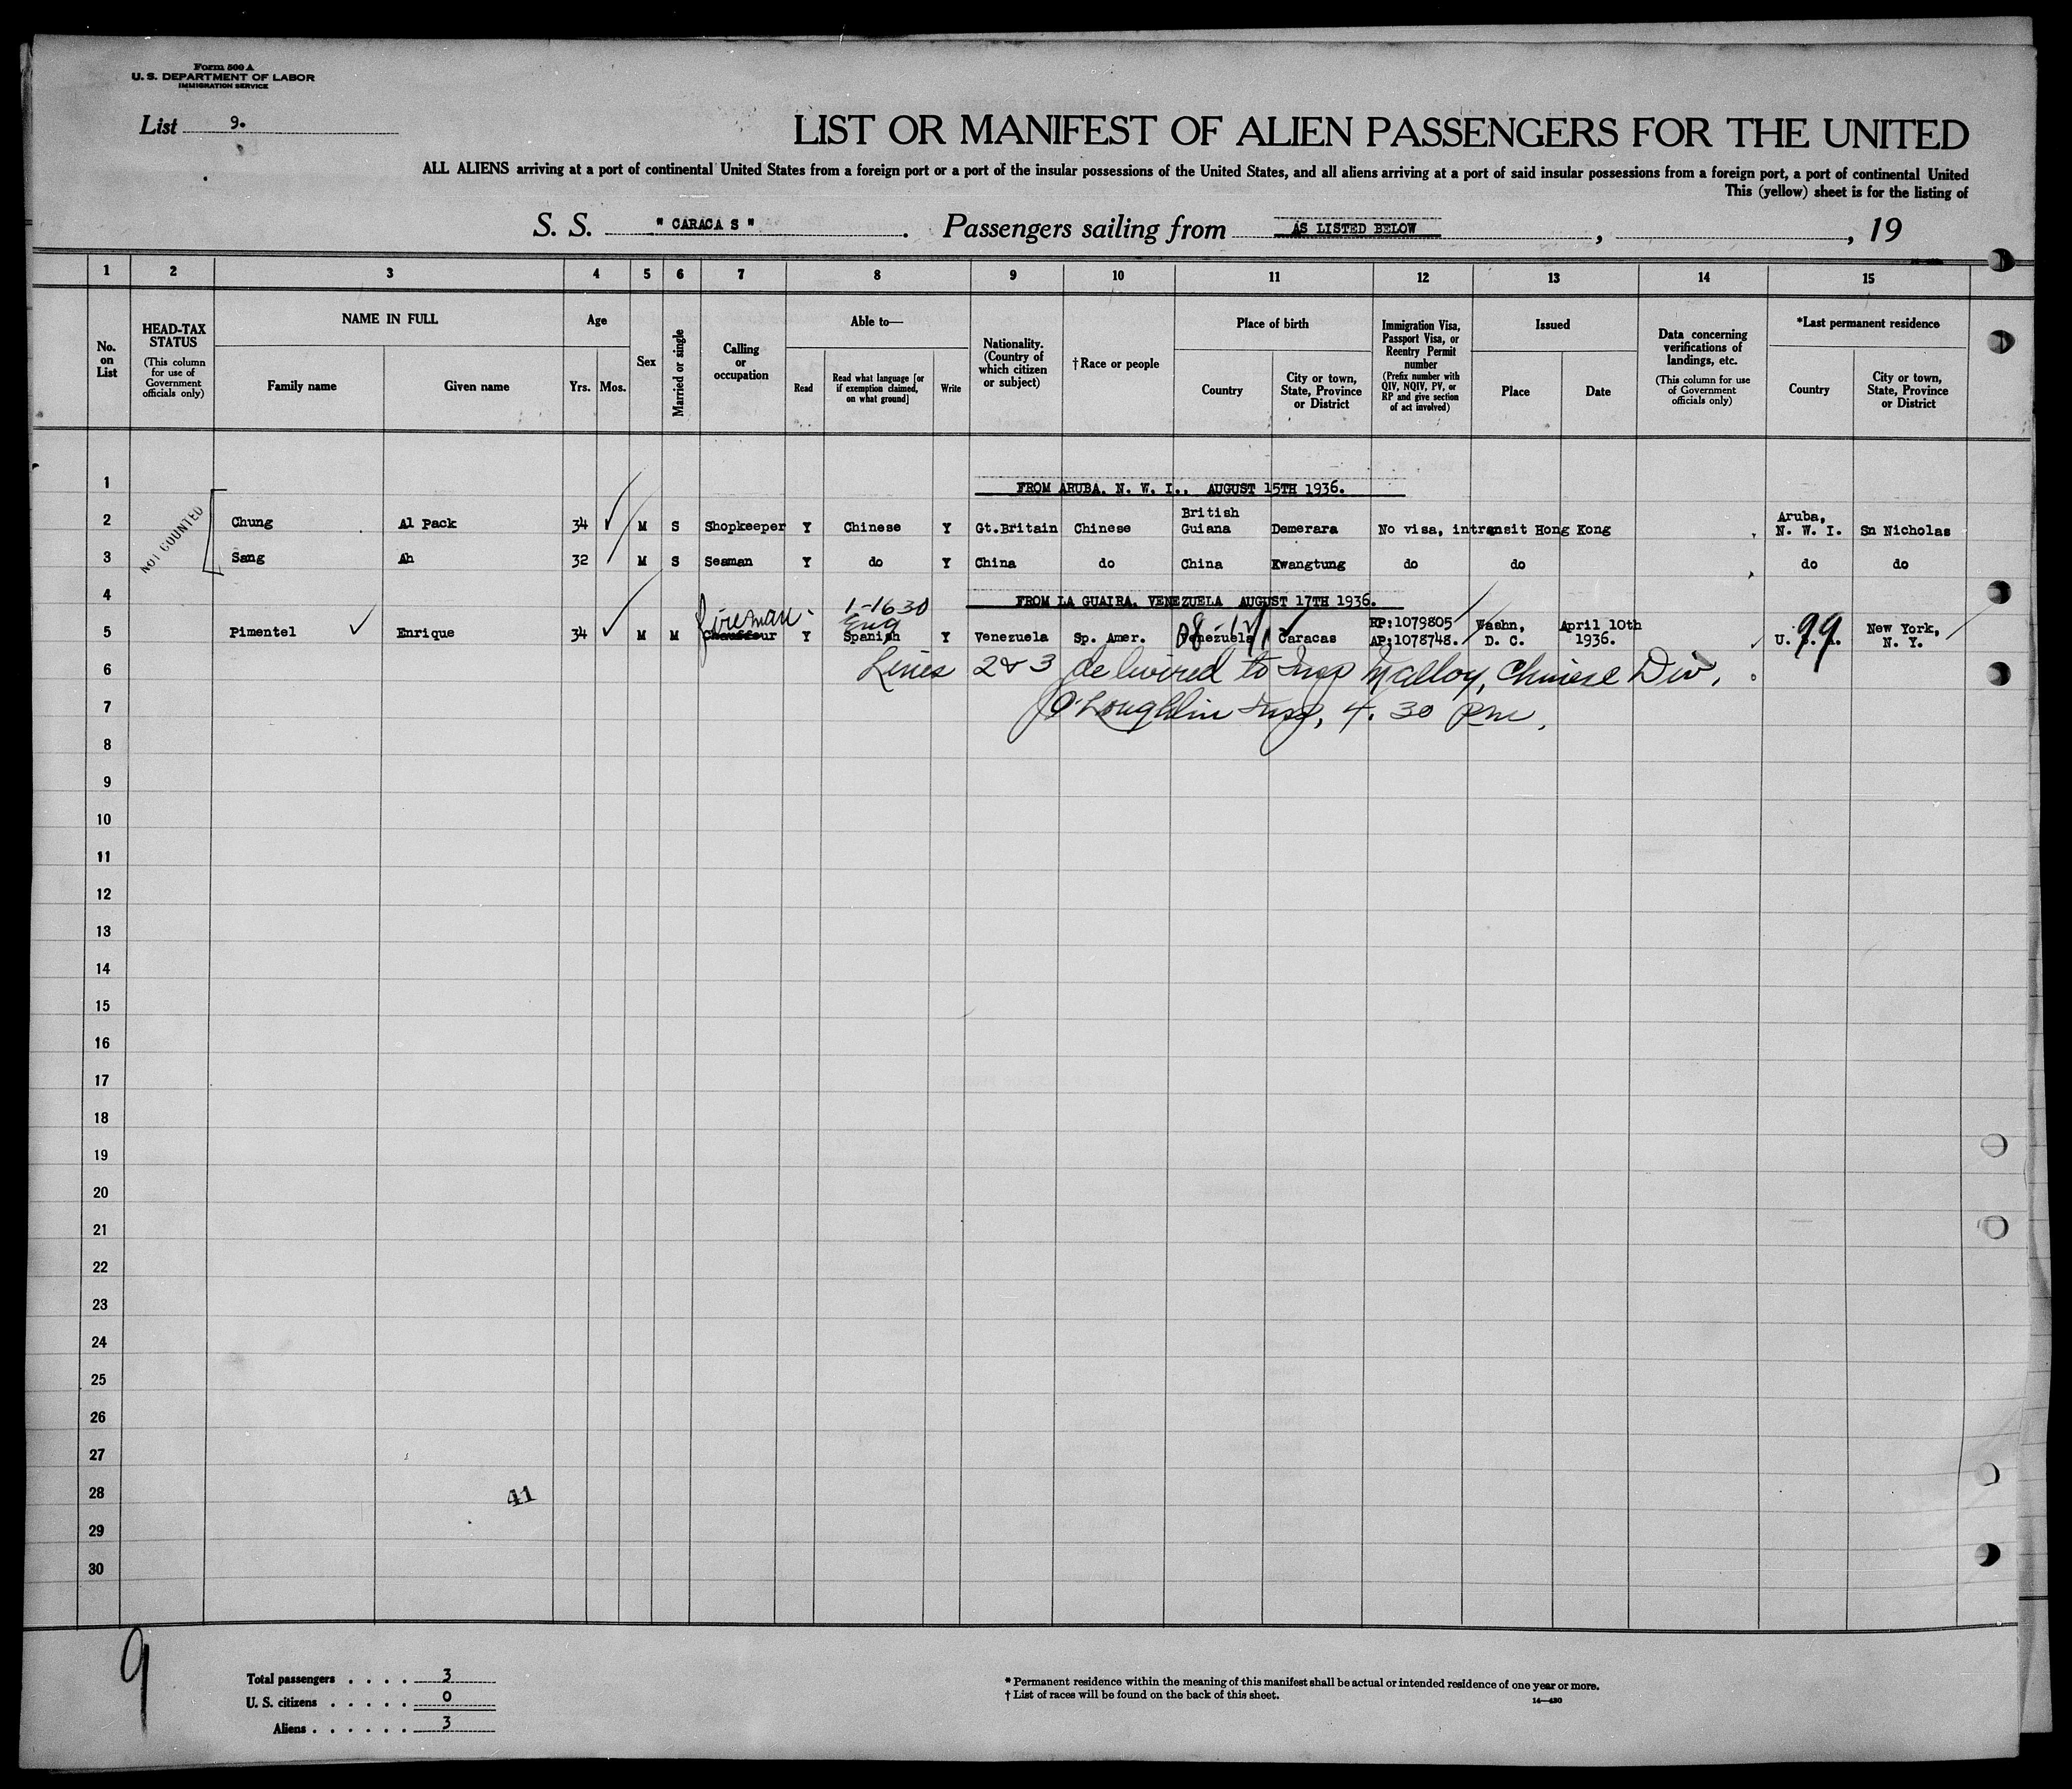 Form 500 A
U. S. DEPARTMENT OF LABOR
IMMIGRATION SERVICE
List 9.
LIST OR MANIFEST OF ALIEN PASSENGERS FOR THE UNITED
ALL ALIENS arriving at a port of continental United States from a foreign port or a port of the insular possessions of the United States, and all aliens arriving at a port of said insular possessions from a foreign port, a port of continental United
This (yellow) sheet is for the listing of
S. S. " CARACA S " . Passengers sailing from AS LISTED BELOW , , 19
1 2 3 4 5 6 7 8 9 10 11 12 13 14 15
No. on List
HEAD-TAX STATUS
(This column for use of Government officials only)
NAME IN FULL
Family name
Given name
Age
Yrs. Mos.
Sex
Married or single
Calling or occupation
Able to—
Read
Read what language [or if exemption claimed, on what ground]
Write
Nationality. (Country of which citizen or subject)
†Race or people
Place of birth
Country
City or town, State, Province or District
Immigration Visa, Passport Visa, or Reentry Permit number
(Prefix number with QIV, NQIV, PV, or RP and give section of act involved)
Issued
Place
Date
Data concerning verifications of landings, etc.
(This column for use of Government officials only)
*Last permanent residence
Country
City or town, State, Province or District
1 FROM ARUBA. N. W. I.. AUGUST 15TH 1936.
NOT COUNTED
2 Chung Al Pack 34 M S Shopkeeper Y Chinese Y Gt.Britain Chinese British Guiana Demerara No visa, intransit Hong Kong Aruba, N. W. I. Sn Nicholas
3 Sang Ah 32 M S Seaman Y do Y China do China Kwangtung do do do do
4 FROM LA GUAIRA. VENEZUELA AUGUST 17TH 1936.
fireman 1-1630
Eng
5 Pimentel Enrique 34 M M Chauffeur Y Spanish Y Venezuela Sp. Amer. Venezuela Caracas RP:1079805 AP:1078748. Washn, D. C. April 10th 1936. U. S. A. New York, N. Y.
99
6 Lines 2 & 3 delivered to Insp Malloy, Chinese Div.
7 O'Loughlin Insp, 4.30 Pm.
8
9
10
11
12
13
14
15
16
17
18
19
20
21
22
23
24
25
26
27
28
41
29
30
9
Total passengers . . . . 3
U. S. citizens . . . . . 0
Aliens . . . . . . 3
* Permanent residence within the meaning of this manifest shall be actual or intended residence of one year or more.
† List of races will be found on the back of this sheet.
14—430